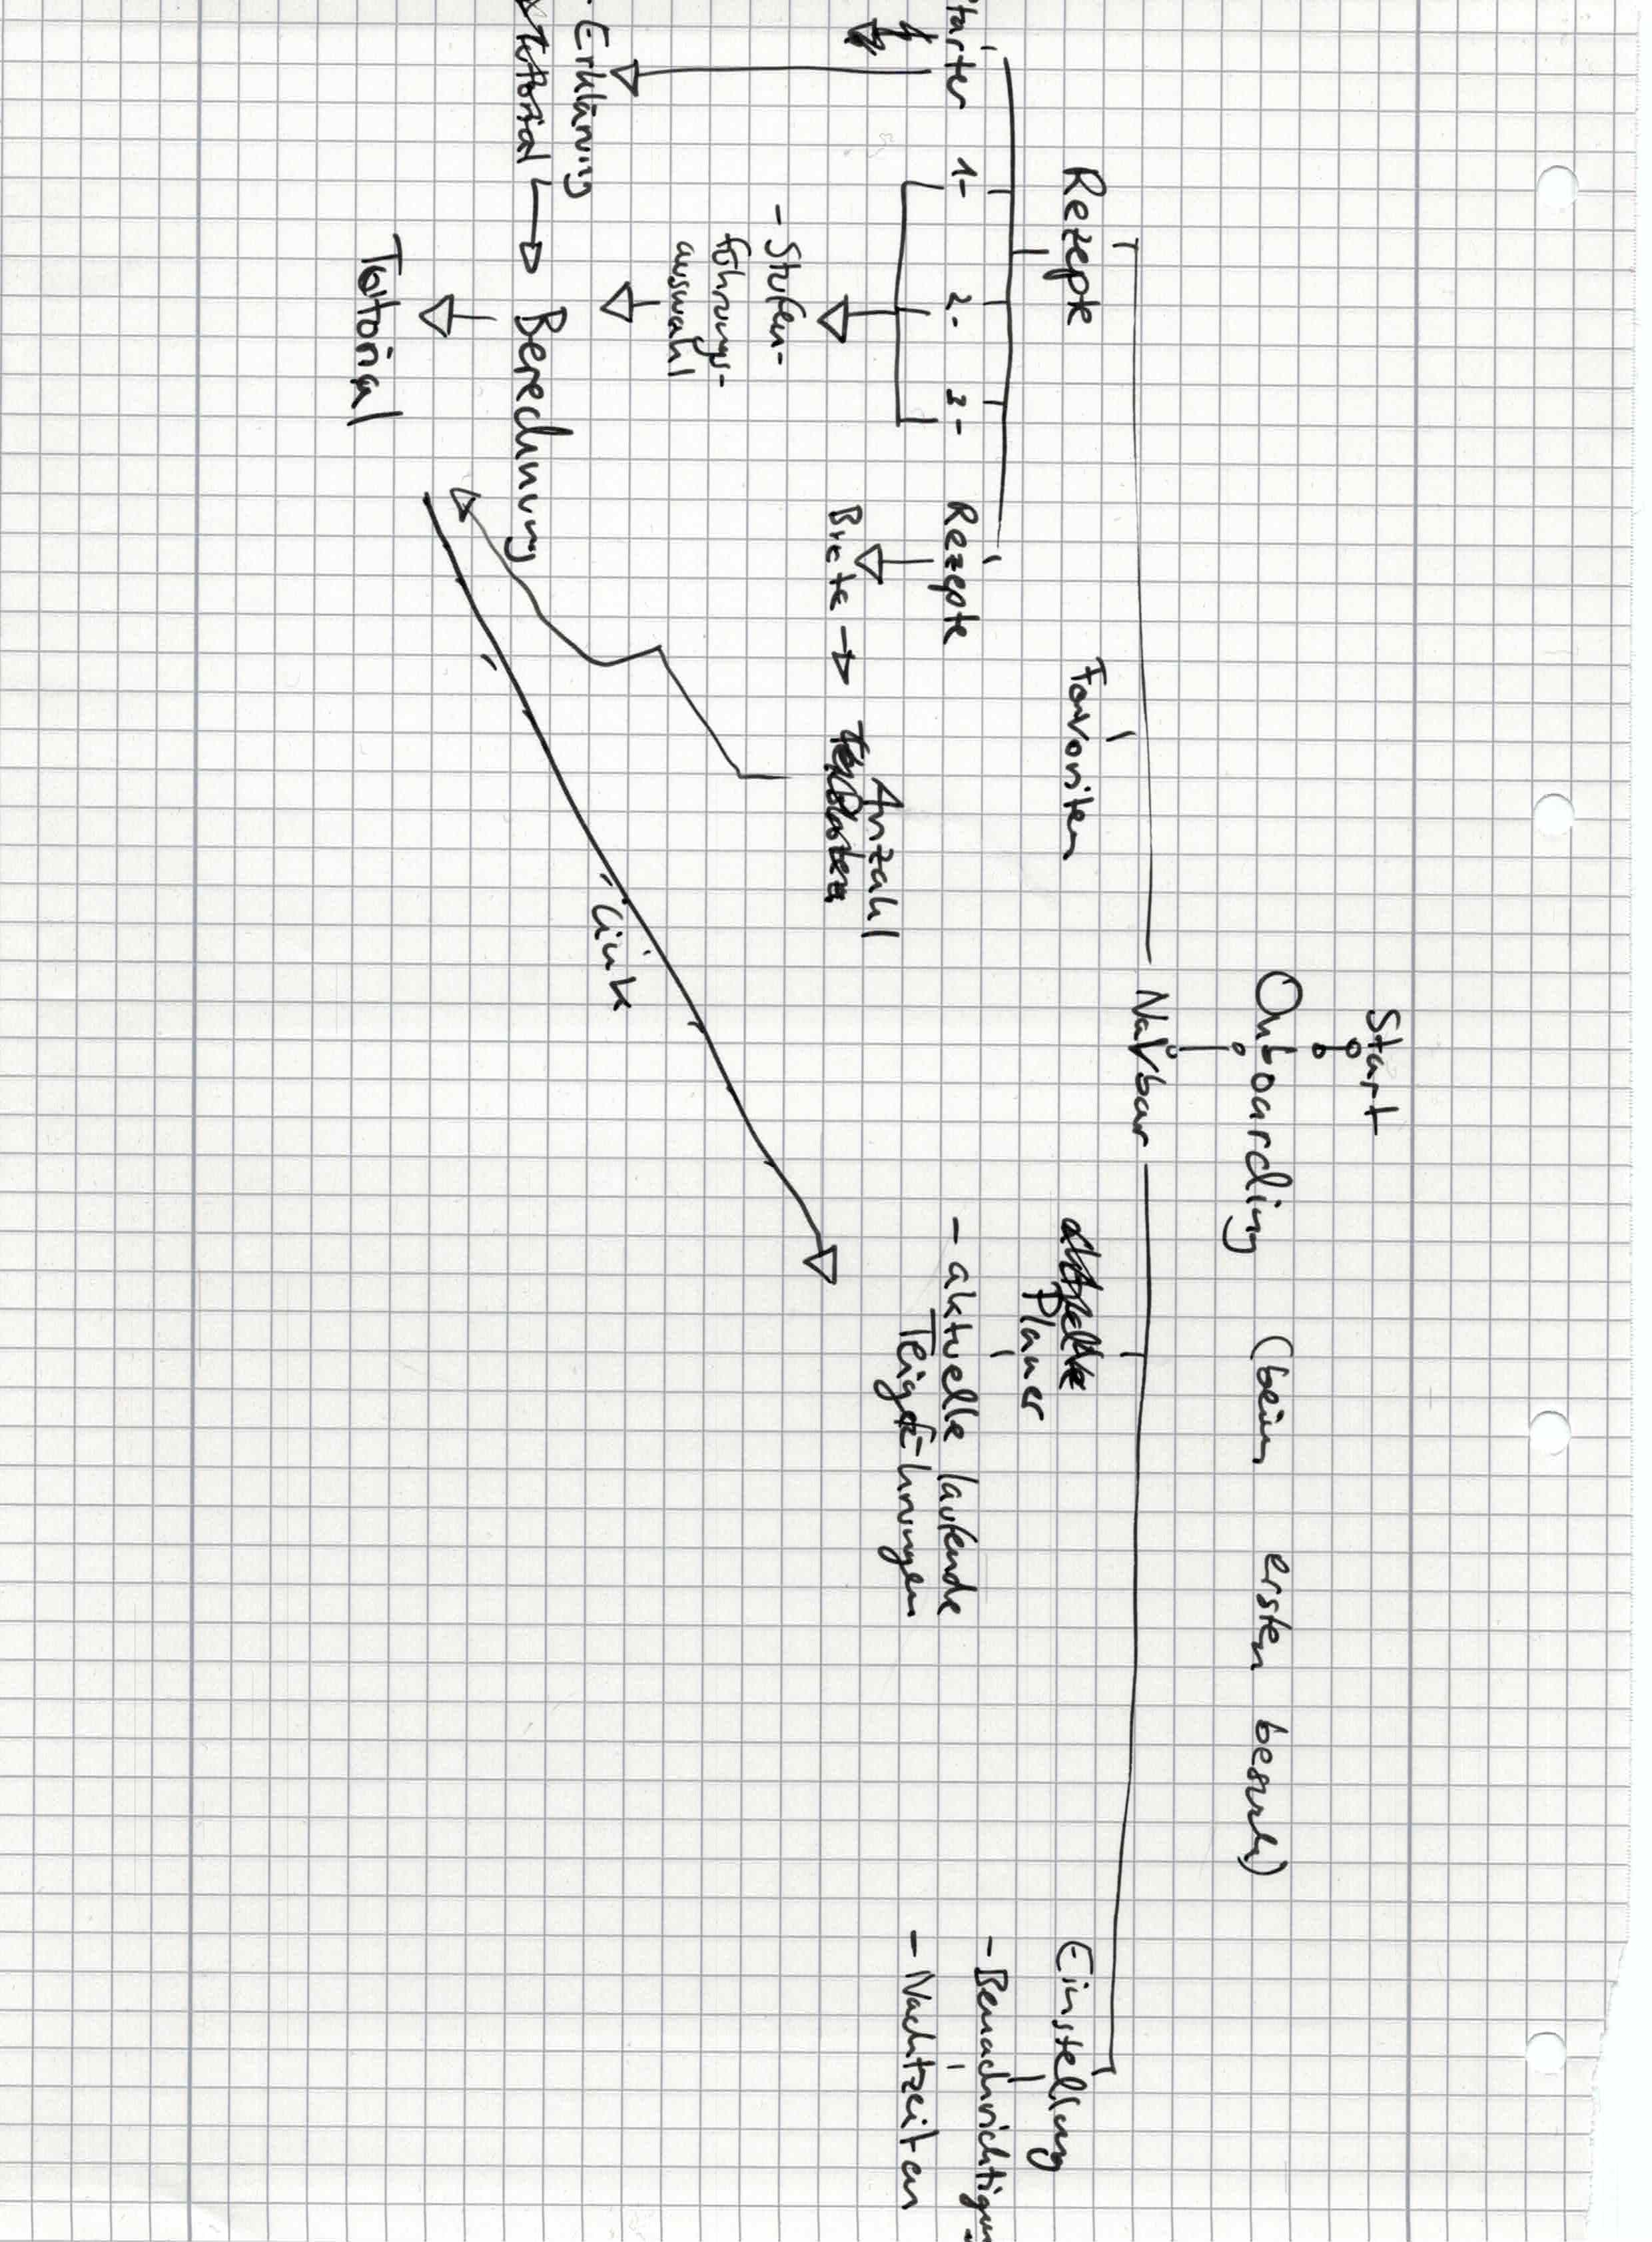 Start
Onboarding (beim ersten besuch)
Navbar
Rezepte Favoriten Planer Einstellung
tarter 1- 2- 3- Rezepte
- aktuelle laufende
Teigführungen
- Benachrichtigun
- Nachtzeiten
Anzahl
Brote
- Stufen-
führungs-
auswahl
Link
- Erklärung
Tutorial
Berechnung
Tutorial